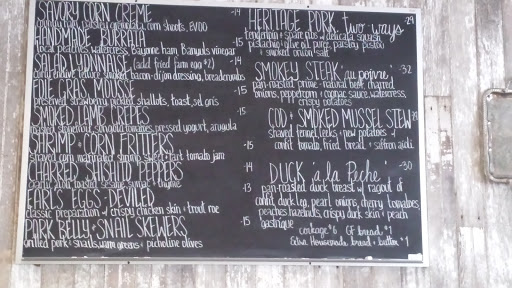 SAVORY CORN CREME -14
corn shoots, EVOO
HANDMADE BURRATA
local peaches, watercress, Bayonne ham, Banyuls vinegar -15
SALAD LYONNAISE (add fried farm egg $2) -14
bacon-dijon dressing, breadcrumbs
FOIE GRAS MOUSSE -15
preserved strawberry, pickled shallots, toast, sel gris
SMOKED LAMB CREPES -15
tomatoes, pressed yogurt, arugula
SHRIMP & CORN FRITTERS
shaved corn, marinated shrimp, sweet & tart tomato jam -15
CHARRED SHISHITO PEPPERS -14
toasted sesame, sumac & thyme
EARL'S EGGS DEVILED -13
classic preparation w/ crispy chicken skin & trout roe
PORK BELLY & SNAIL SKEWERS -15
grilled pork & snails, warm greens & picholine olives
HERITAGE PORK two ways -29
tenderloin & spare ribs w/ delicata squash
pistachio & olive oil puree, parsley pistou
& smoked onion salt
SMOKEY STEAK 'au poivre' -32
pan-roasted prime natural beef, charred
onions, peppercorn & cognac sauce, watercress,
crispy potatoes
COD & SMOKED MUSSEL STEW
shaved fennel, leeks, new potatoes w/
confit tomato, fried bread & saffron aioli
DUCK 'a la Pêche' -30
pan-roasted duck breast w/ ragout of
confit duck leg, pearl onions, cherry tomatoes
peaches, hazelnuts, crispy duck skin & peach
gastrique
corkage $6 GF bread $1
Extra Housemade bread & butter $1